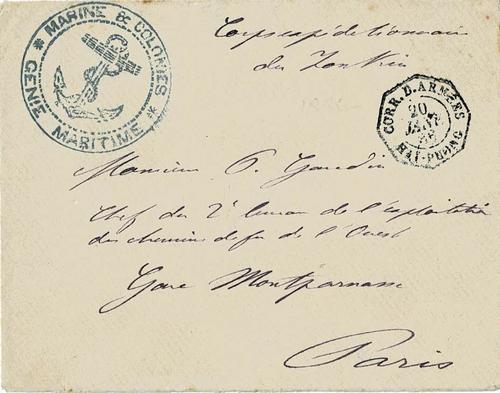 MARINE & COLONIES
* GÉNIE MARITIME *
Corps expéditionnaire
du Tonkin
CORR. D. ARMÉES
20
JANV.
86
HAÏ-PHONG
Monsieur P. Gaudin
Chef du 2e bureau de l'exploitation
des chemins de fer de l'Ouest
Gare Montparnasse
Paris